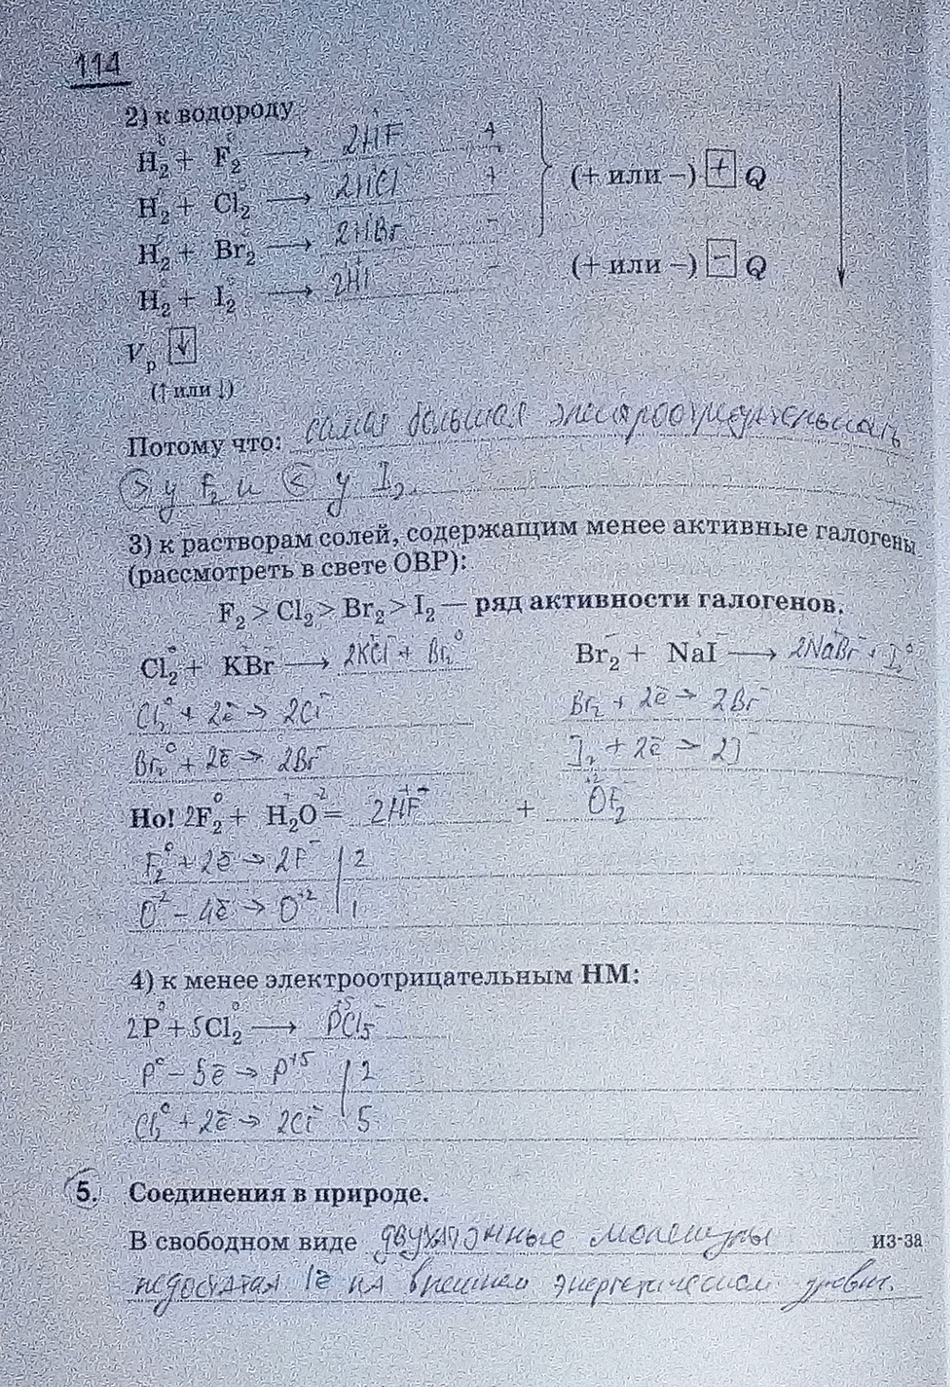 114
2) к водороду
H₂⁰ + F₂⁰ → 2HF +
H₂⁰ + Cl₂⁰ → 2HCl +
(+ или –) + Q
H₂⁰ + Br₂⁰ → 2HBr –
(+ или –) – Q
H₂ + I₂ → 2HI –
Vр ↓
(↑ или ↓)
Потому что: самая большая электроотрицательность
(>) у F₂ и (<) у I₂.
3) к растворам солей, содержащим менее активные галогены
(рассмотреть в свете ОВР):
F₂ > Cl₂ > Br₂ > I₂ — ряд активности галогенов.
Cl₂⁰ + K⁺Br⁻ → 2K⁺Cl⁻ + Br₂⁰ Br₂ + NaI⁻ → 2Na⁺Br⁻ + I₂⁰
Cl₂⁰ + 2ē → 2Cl⁻ Br₂ + 2ē → 2Br⁻
Br₂⁰ + 2ē → 2Br⁻ I₂ + 2ē → 2I⁻
Но! 2F₂⁰ + H₂⁺O⁻² = 2H⁺F⁻ + O⁺²F₂⁻
F₂⁰ + 2ē → 2F⁻ | 2
O⁻² – 4ē → O⁺² | 1
4) к менее электроотрицательным НМ:
2P⁰ + 5Cl₂⁰ → P⁺⁵Cl₅⁻
P⁰ – 5ē → P⁺⁵ | 2
Cl₂⁰ + 2ē → 2Cl⁻ | 5
5. Соединения в природе.
В свободном виде двухатомные молекулы из-за
недостатка 1ē на внешнем энергетическом уровне.